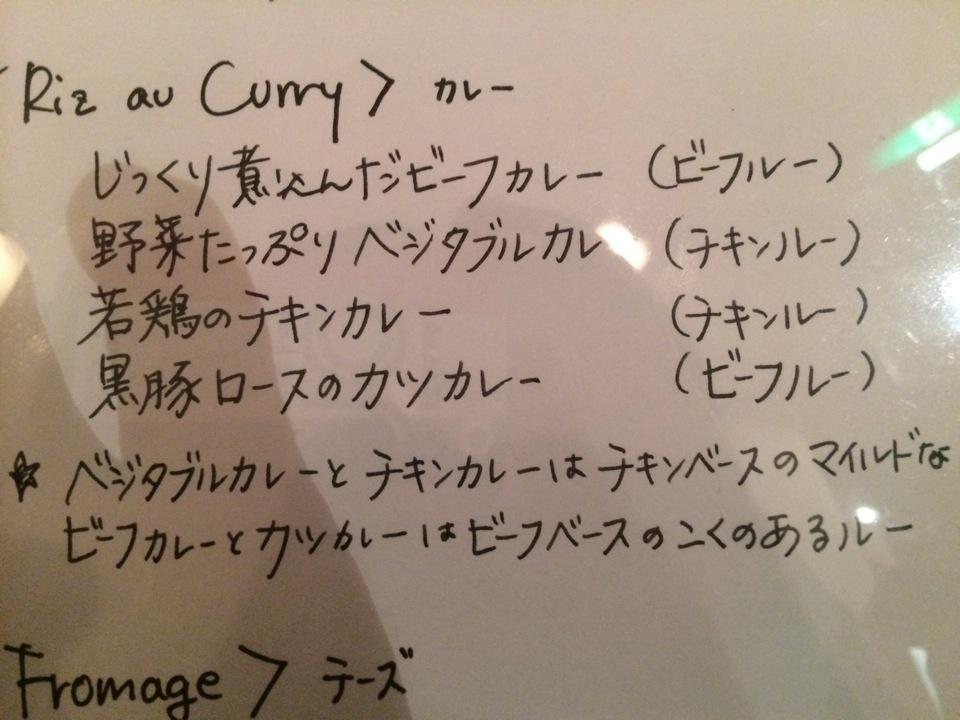 Riz au Curry> カレー
じっくり煮込んだビーフカレー (ビーフルー)
野菜たっぷり ベジタブルカレー (チキンルー)
若鶏のチキンカレー (チキンルー)
黒豚ロースのカツカレー (ビーフルー)
☆ ベジタブルカレーと チキンカレーは チキンベースのマイルドな
ビーフカレーとカツカレーはビーフベースのこくのあるルー
Fromage > チーズ